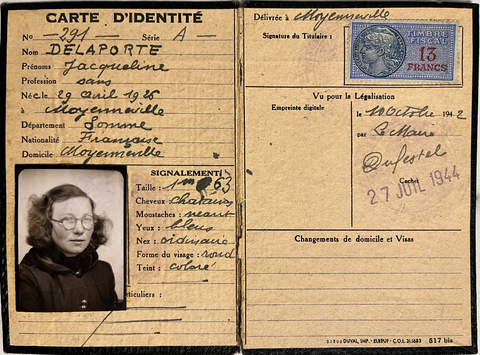 CARTE D'IDENTITÉ
No 291 Série A
Nom DELAPORTE
Prénoms Jacqueline
Profession sans
Née le 29 avril 1925
à Moyenneville
Département Somme
Nationalité Française
Domicile Moyenneville
SIGNALEMENT
Taille : 1m 63
Cheveux : chatains
Moustaches : néant
Yeux : bleus
Nez : ordinaire
Forme du visage : rond
Teint : coloré
ticuliers :
Délivrée à Moyenneville
Signature du Titulaire :
TIMBRE
FISCAL
13
FRANCS
Vu pour le Légalisation
Empreinte digitale
le 10 Octobre 1942
par Le Maire
Cachet
27 JUIL 1944
Changements de domicile et Visas
DUVAL, IMP. - ELBEUF - C.O.L. 517 bis